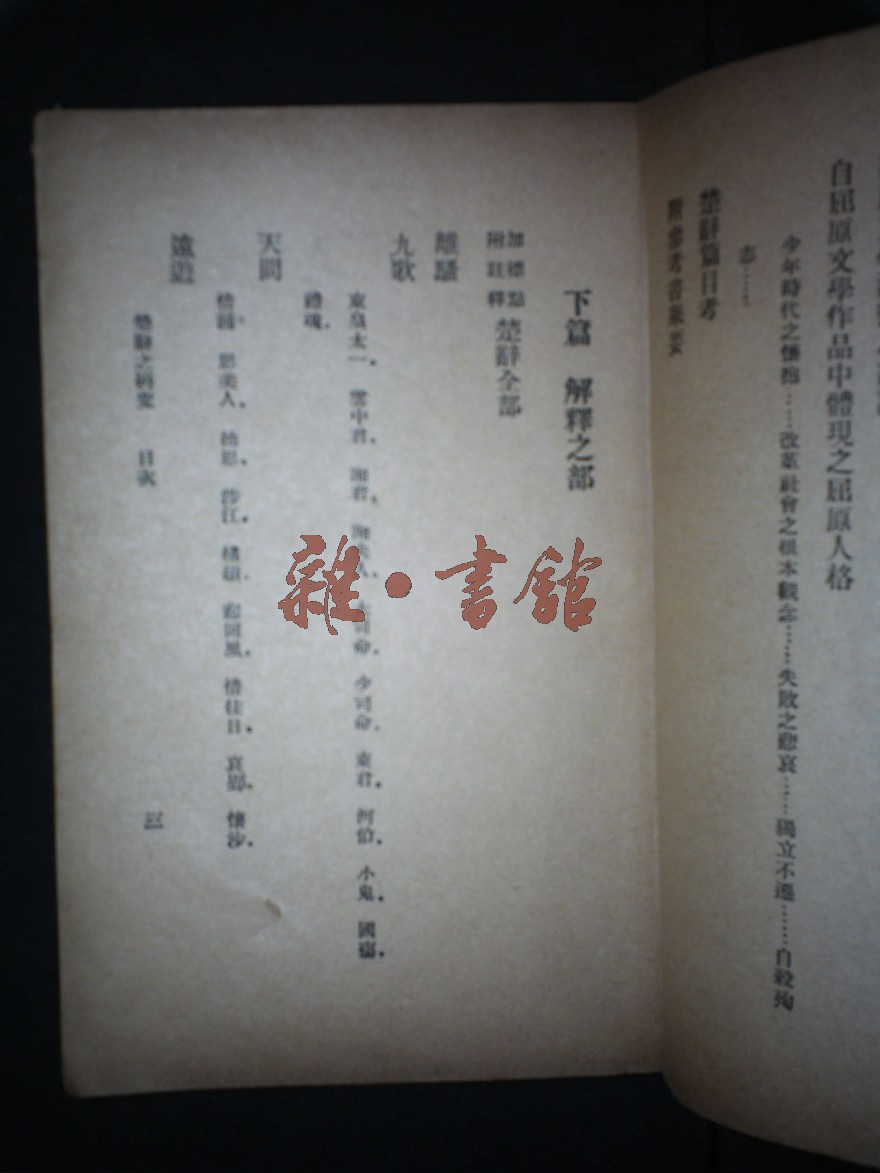 自屈原文學作品中體現之屈原人格
少年時代之懷抱……改革社會之根本觀念……失敗之悲哀……獨立不遷……自殺殉
志……
楚辭篇目考
附參考書舉要
下篇 解釋之部
加標點
附註釋
楚辭全部
離騷
九歌
東皇太一． 雲中君． 湘君． 湘夫人． 大司命． 少司命． 東君． 河伯． 小鬼． 國殤．
禮魂．
天問
惜誦． 思美人． 抽思． 涉江． 橘頌． 悲回風． 惜往日． 哀郢． 懷沙．
遠遊
楚辭之研究 目次 三
雜·書館